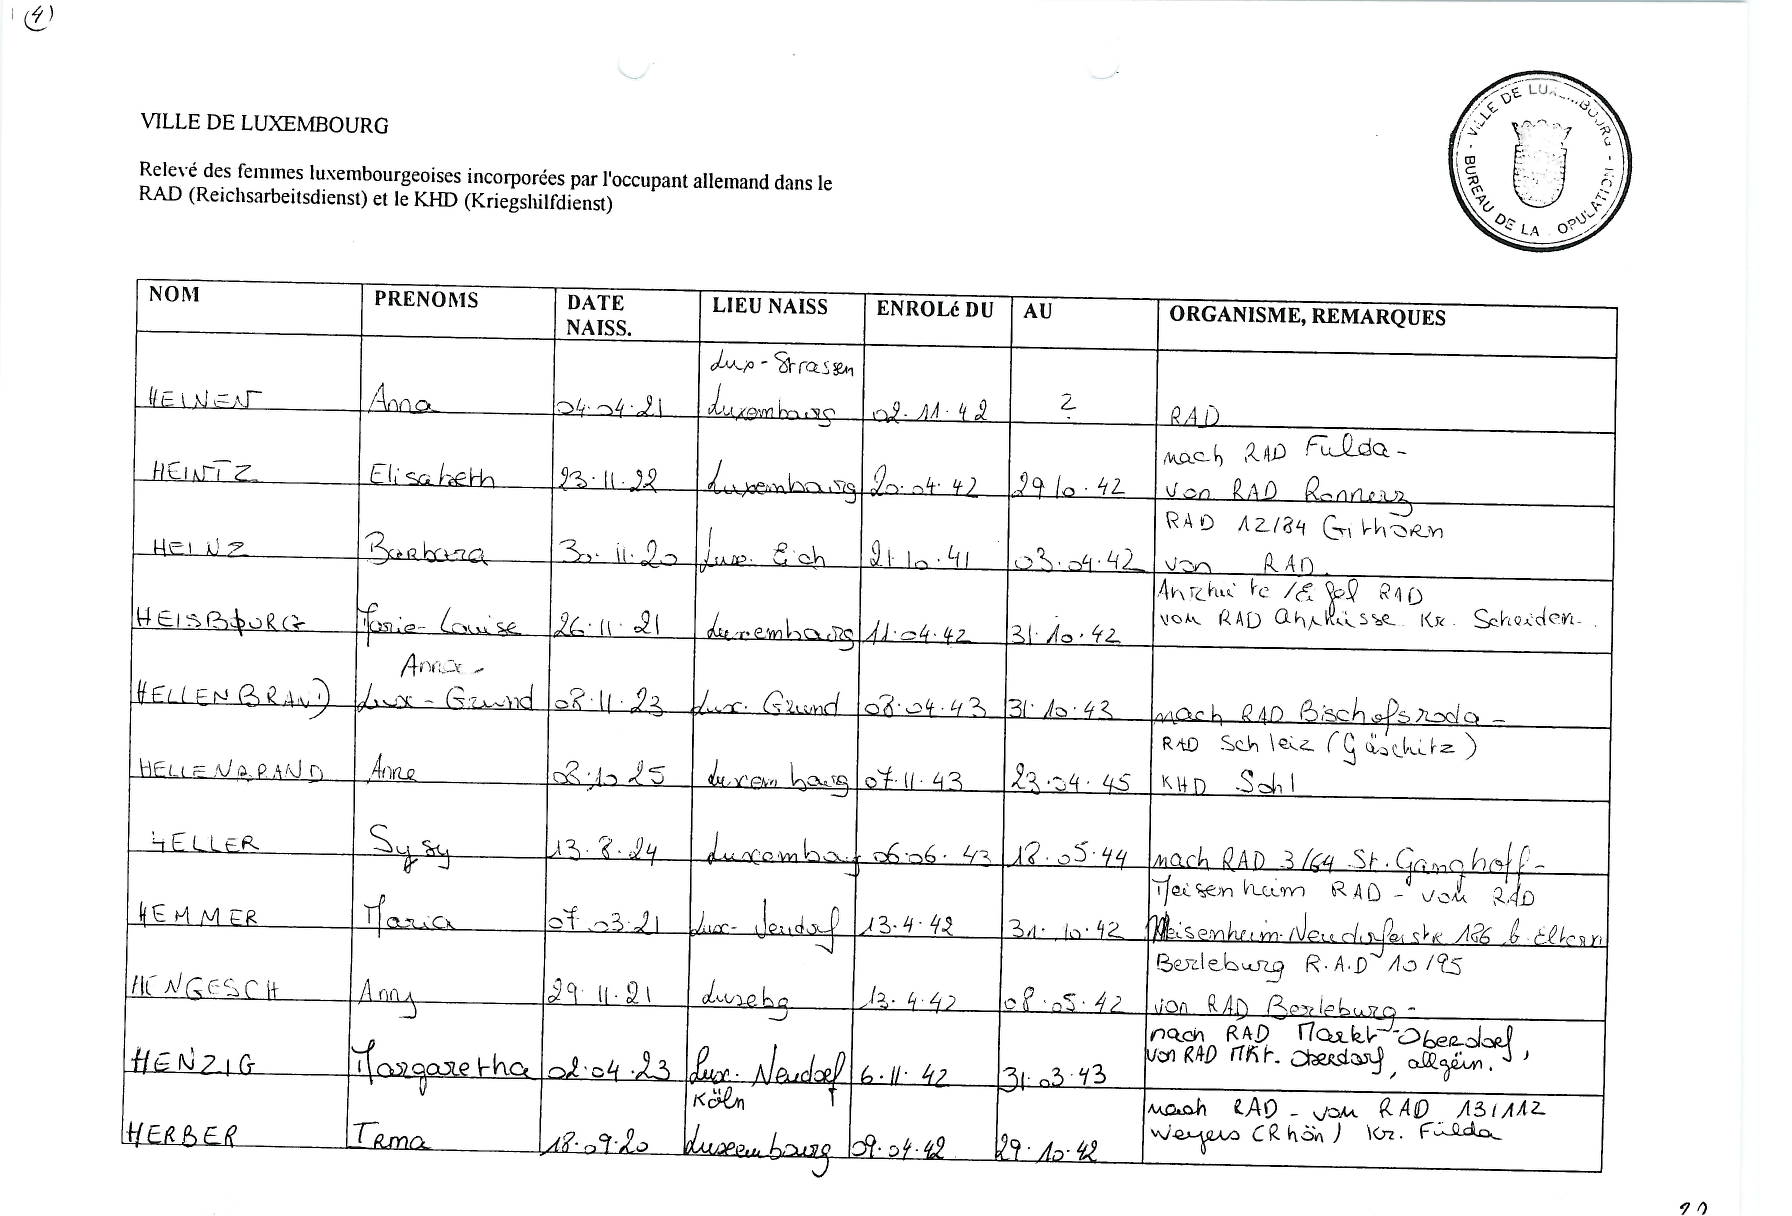 (4)
VILLE DE LUXEMBOURG
Relevé des femmes luxembourgeoises incorporées par l'occupant allemand dans le
RAD (Reichsarbeitsdienst) et le KHD (Kriegshilfdienst)
VILLE DE LUXEMBOURG - BUREAU DE LA POPULATION
NOM PRENOMS DATE NAISS. LIEU NAISS ENROLé DU AU ORGANISME, REMARQUES
Lux-Strassen
HEINEN Anna 04.04.21 Luxembourg 02.11.42 ? RAD
nach RAD Fulda-
HEINTZ Elisabeth 23.11.22 Luxembourg 20.04.42 29 10.42 von RAD
RAD 12/84 Githorn
HEINZ Barbara 30.11.20 Lux. Eich 21.10.41 03.04.42 von RAD.
RAD
HEISBOURG Marie-Louise 26.11.21 Luxembourg 11.04.42 31.10.42 vom RAD Kr. Scheiden.
Anna-
HELLENBRAND Lux-Grund 08.11.23 Lux. Grund 08.04.43 31.10.43 nach RAD Bischofsroda-
RAD Schleiz (Gäschitz)
HELLENBRAND Anne 08.10 25 Luxembourg 07.11.43 23.04.45 KHD Sohl
HELLER Sysy 13.8.24 Luxembourg 06.06.43 18.05.44 nach RAD 3/64 St. Ganghoff-
Meisenheim RAD - vom RAD
HEMMER Maria 07.03.21 Lux-Neudorf 13.4.42 31.10.42 Meisenheim-Neudorferstr 186 b. Eltern
Berleburg R.A.D 10/95
HENGESCH Anny 29.11.21 Luxebg 13.4.42 08.05.42 von RAD Berleburg-
nach RAD Markt-Oberdorf,
HENZIG Margaretha 02.04.23 Lux. Neudorf 6.11.42 31.03.43 von RAD Mkt. Oberdorf, allgëin.
Köln nach RAD - vom RAD 13/112
HERBER Irma 18.09.20 Luxembourg 09.04.42 29.10.42 Weyers (Rhön) Kr. Fülda